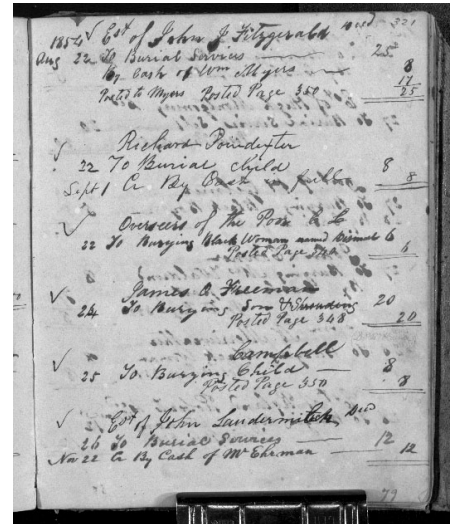 1854 √ Est of John J Fitzgerald Decd 321
Aug 22 To Burial Services 25
By Cash of Wm Myers 8
17
Posted to Myers Posted Page 350 25
√ Richard Poindexter
22 To Burial Child 8
Sept 1 Cr By Cash 8
√ Overseers of the Poor
22 To Burying Black Woman named 6
Posted Page 6
James Freeman
24 To Burying Son & Shrouding 20
Posted Page 348 20
√ Campbell
25 To Burying Child 8
Posted Page 350 8
√ Est of John Laudermilch Decd
26 To Burial Services 12
Nov 22 Cr By Cash of Mr Ehrman 12
79